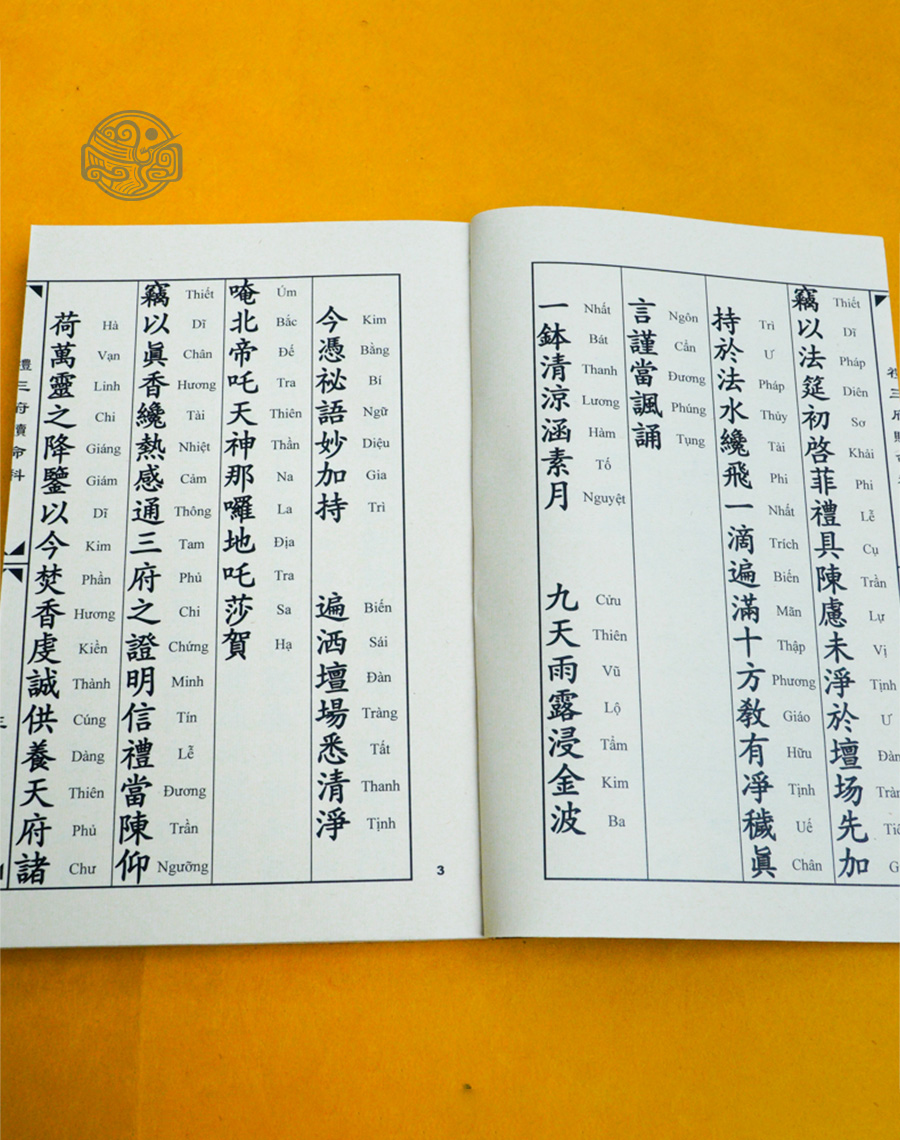 竊以法筵初啓菲禮具陳慮未淨於壇场先加
Thiết Dĩ Pháp Diên Sơ Khải Phi Lễ Cụ Trần Lự Vị Tịnh Ư Đàn
持於法水纔飛一滴遍滿十方教有凈穢眞
Trì Ư Pháp Thủy Tài Phi Nhất Trích Biến Mãn Thập Phương Giáo Hữu Tịnh Uế Chân
言謹當諷誦
Ngôn Cẩn Đương Phúng Tụng
一鉢清涼涵素月
Nhất Bát Thanh Lương Hàm Tố Nguyệt
九天雨露浸金波
Cửu Thiên Vũ Lộ Tẩm Kim Ba
今憑祕語妙加持
Kim Bằng Bí Ngữ Diệu Gia Trì
遍洒壇場悉清淨
Biến Sái Đàn Tràng Tất Thanh Tịnh
唵北帝吒天神那囉地吒莎賀
Úm Bắc Đế Tra Thiên Thần Na La Địa Tra Sa Hạ
竊以眞香纔熱感通三府之證明信禮當陳仰
Thiết Dĩ Chân Hương Tài Nhiệt Cảm Thông Tam Phủ Chi Chứng Minh Tín Lễ Đương Trần Ngưỡng
荷萬靈之降鑒以今焚香虔誠供養天府諸
Hà Vạn Linh Chi Giáng Giám Dĩ Kim Phần Hương Kiền Thành Cúng Dàng Thiên Phủ Chư
禮三府贖命科
3